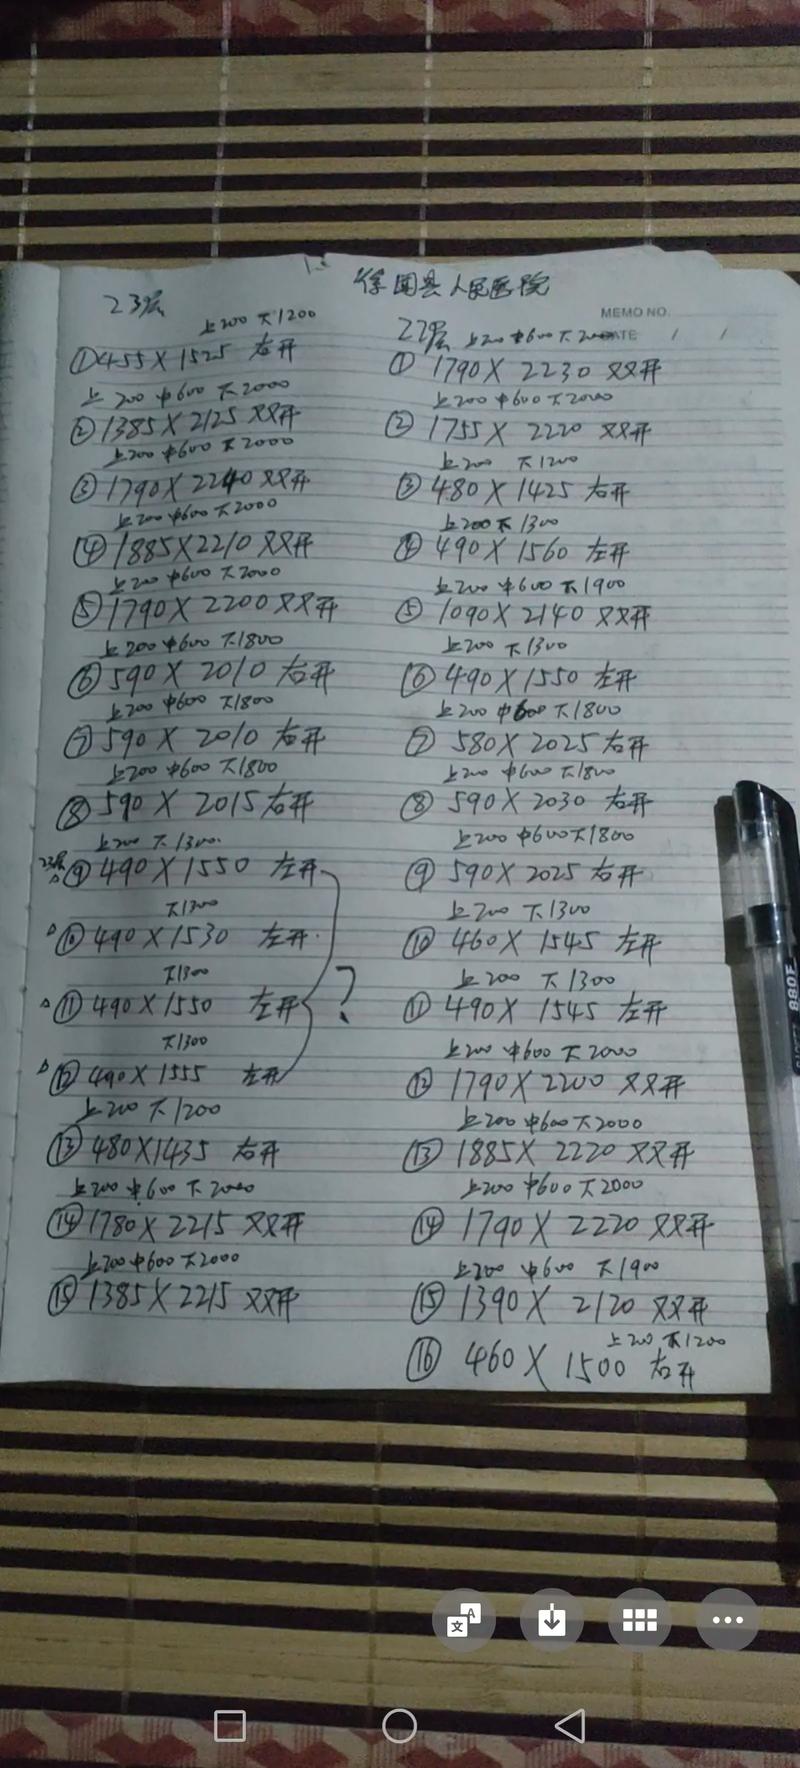 徐闻县人民医院
MEMO NO.
DATE / /
23层
上200 下1200
①455X1525 右开
上200 中600 下2000
②1385X2125 双开
上200 中600 下2000
③1790X2240 双开
上200 中600 下2000
④1885X2210 双开
上200 中600 下2000
⑤1790X2200 双开
上200 中600 下1800
⑥590X2010 右开
上200 中600 下1800
⑦590X2010 右开
上200 中600 下1800
⑧590X2015 右开
上200 下1300
23层 ⑨490X1550 左开
下1300
⑩490X1530 左开
下1300
⑪490X1550 左开 ?
下1300
⑫490X1555 左开
上200 下1200
⑬480X1435 右开
上200 中600 下2000
⑭1780X2215 双开
上200 中600 下2000
⑮1385X2215 双开
22层 上200 中600 下2000
①1790X2230 双开
上200 中600 下2000
②1755X2220 双开
上200 下1200
③480X1425 右开
上200 下1300
④490X1560 左开
上200 中600 下1900
⑤1090X2140 双开
上200 下1300
⑥490X1550 左开
上200 中600 下1800
⑦580X2025 右开
上200 中600 下1800
⑧590X2030 右开
上200 中600 下1800
⑨590X2025 右开
上200 下1300
⑩460X1545 左开
上200 下1300
⑪490X1545 左开
上200 中600 下2000
⑫1790X2200 双开
上200 中600 下2000
⑬1885X2220 双开
上200 中600 下2000
⑭1790X2220 双开
上200 中600 下1900
⑮1390X2120 双开
上200 下1200
⑯460X1500 右开